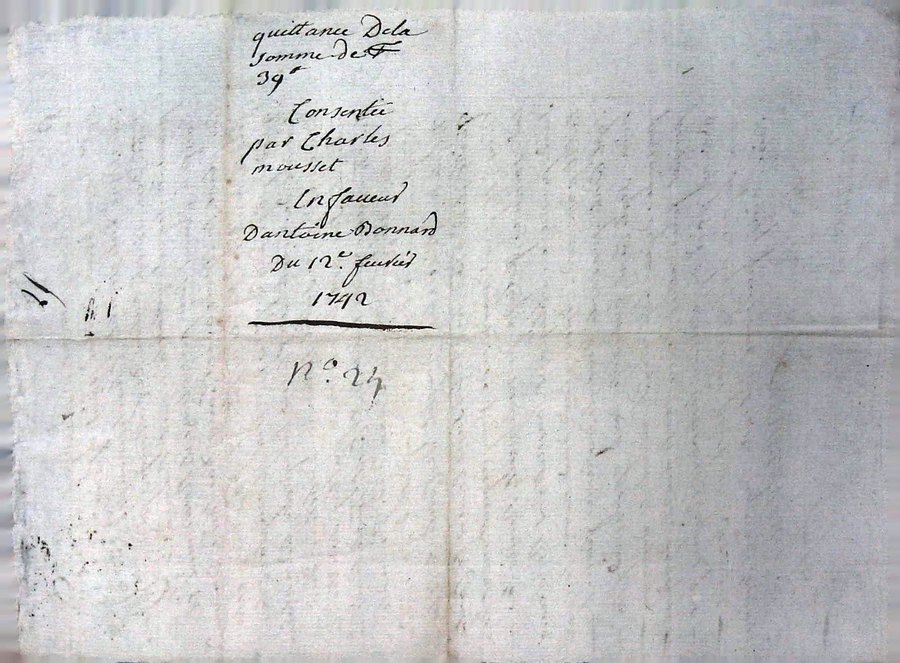 quittance Dela
somme de F
39#
Consentie
par Charles
mousset
En faveur
Dantoine Bonnard
Du 12e. fevrier
1792
No. 24